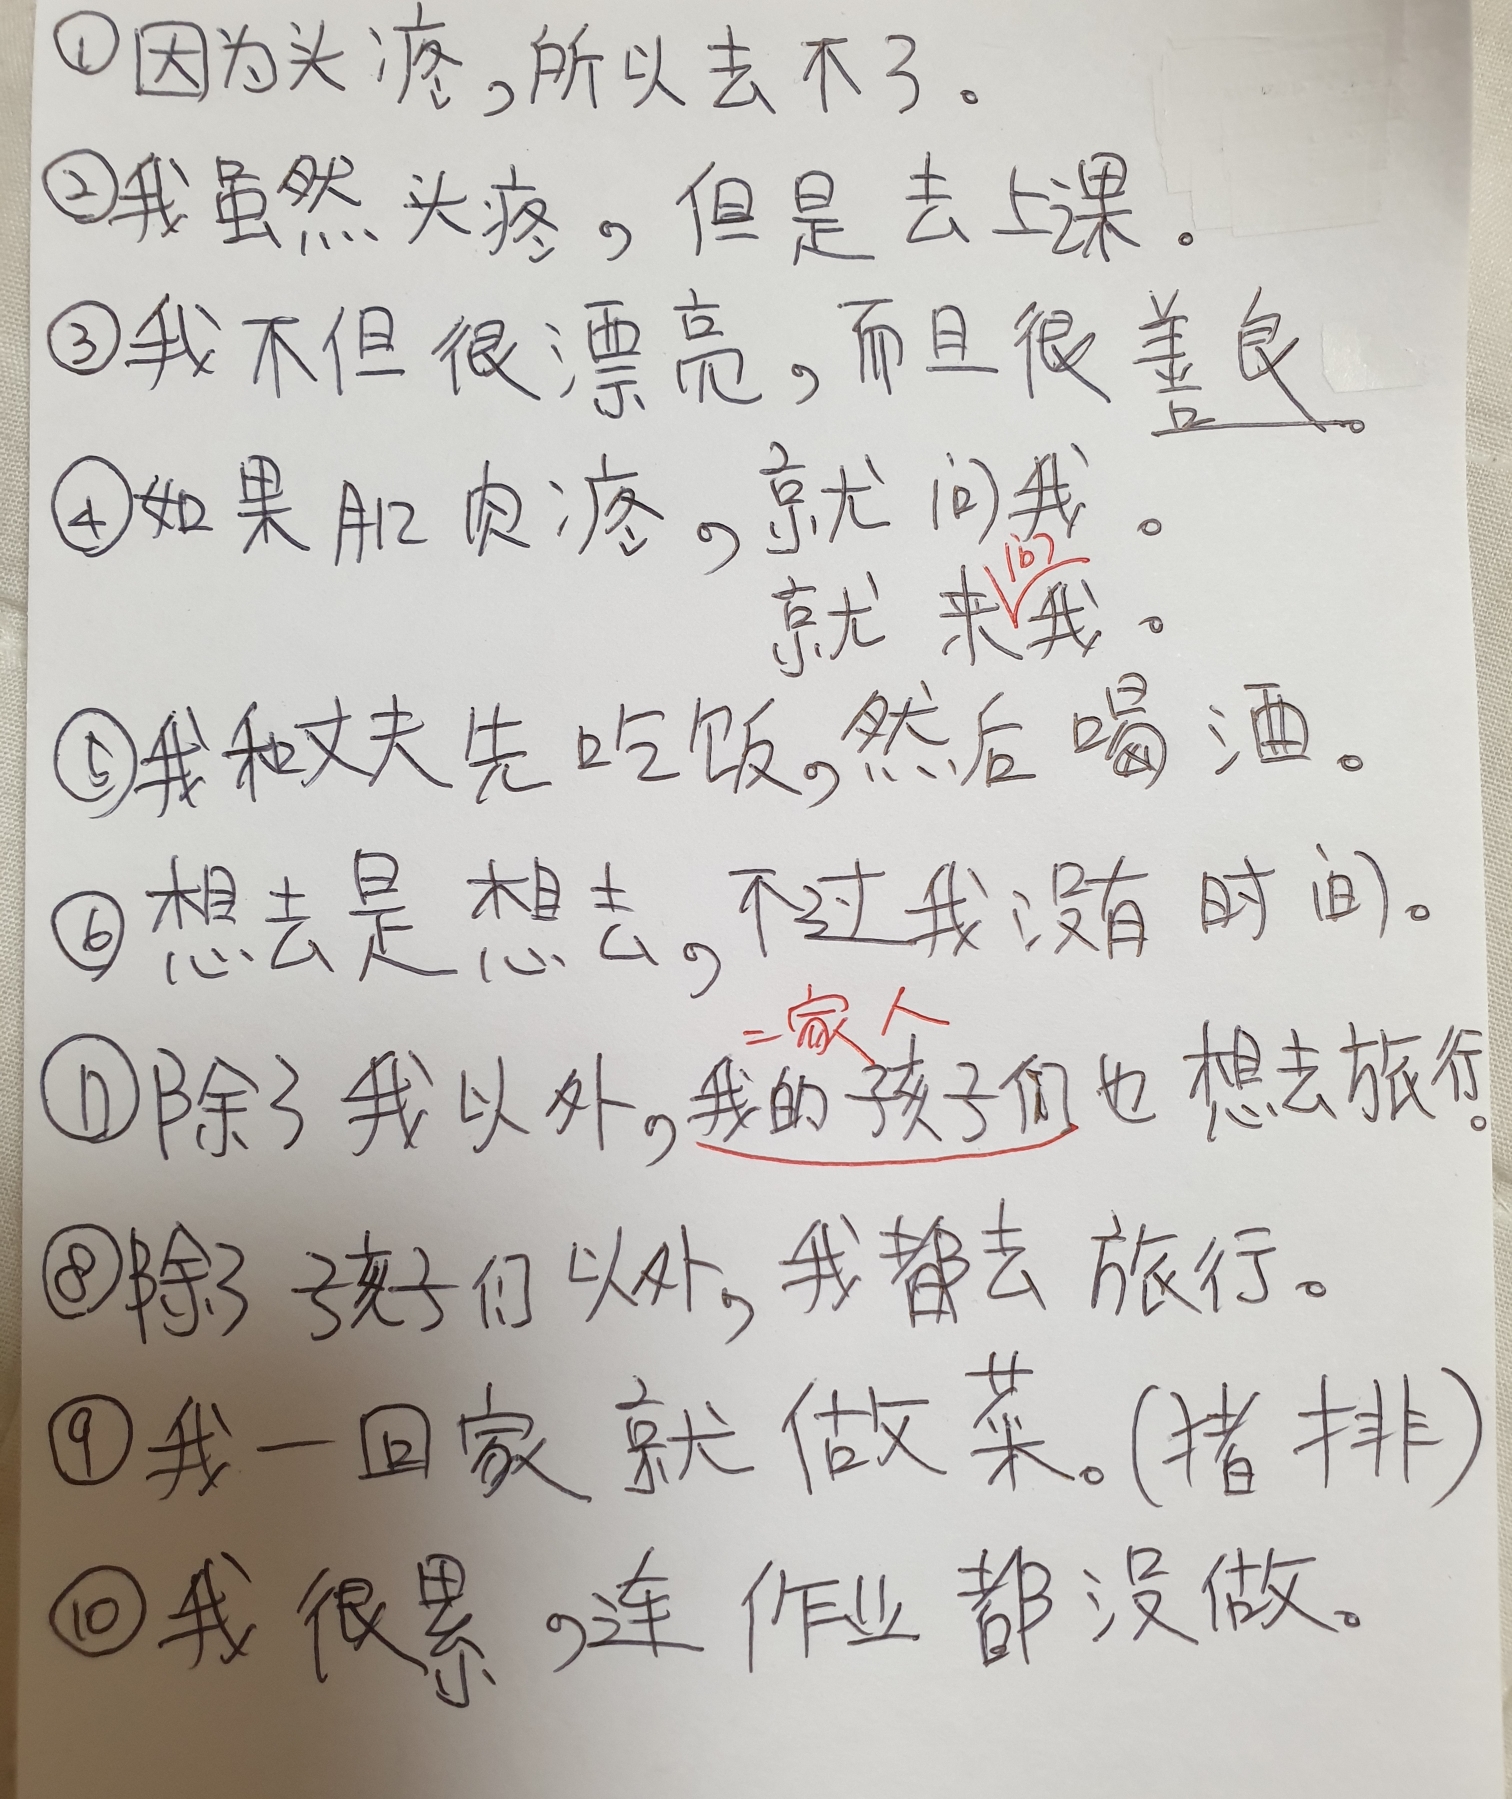 ①因为头疼,所以去不了。
②我虽然头疼,但是去上课。
③我不但很漂亮,而且很善良。
④如果肌肉疼,就问我。
问
就来我。
⑤我和丈夫先吃饭,然后喝酒。
⑥想去是想去,不过我没有时间。
=家人
⑦除了我以外,我的孩子们也想去旅行。
⑧除了孩子们以外,我都去旅行。
⑨我一回家就做菜。(猪排)
⑩我很累,连作业都没做。